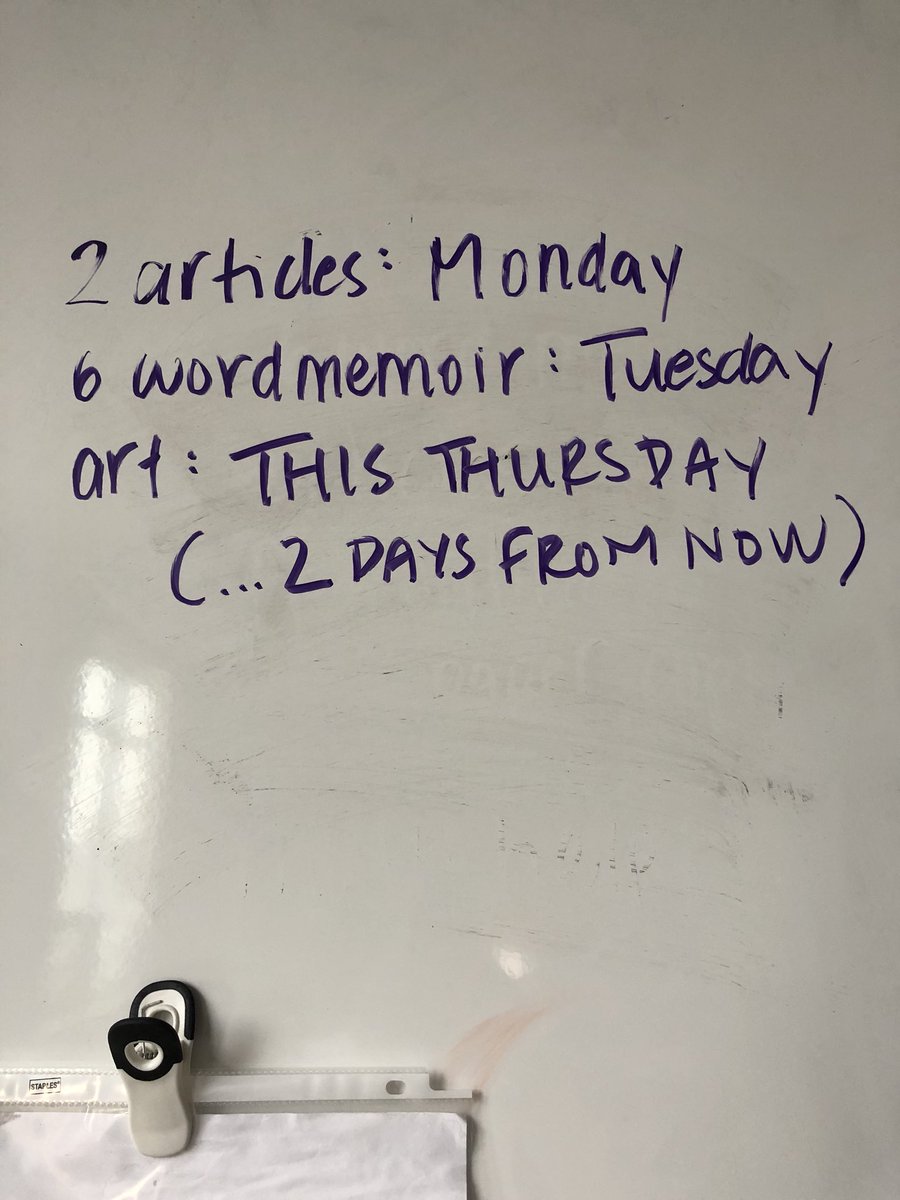 2 articles: Monday
6 word memoir: Tuesday
art: THIS THURSDAY
(...2 DAYS FROM NOW)
STAPLES